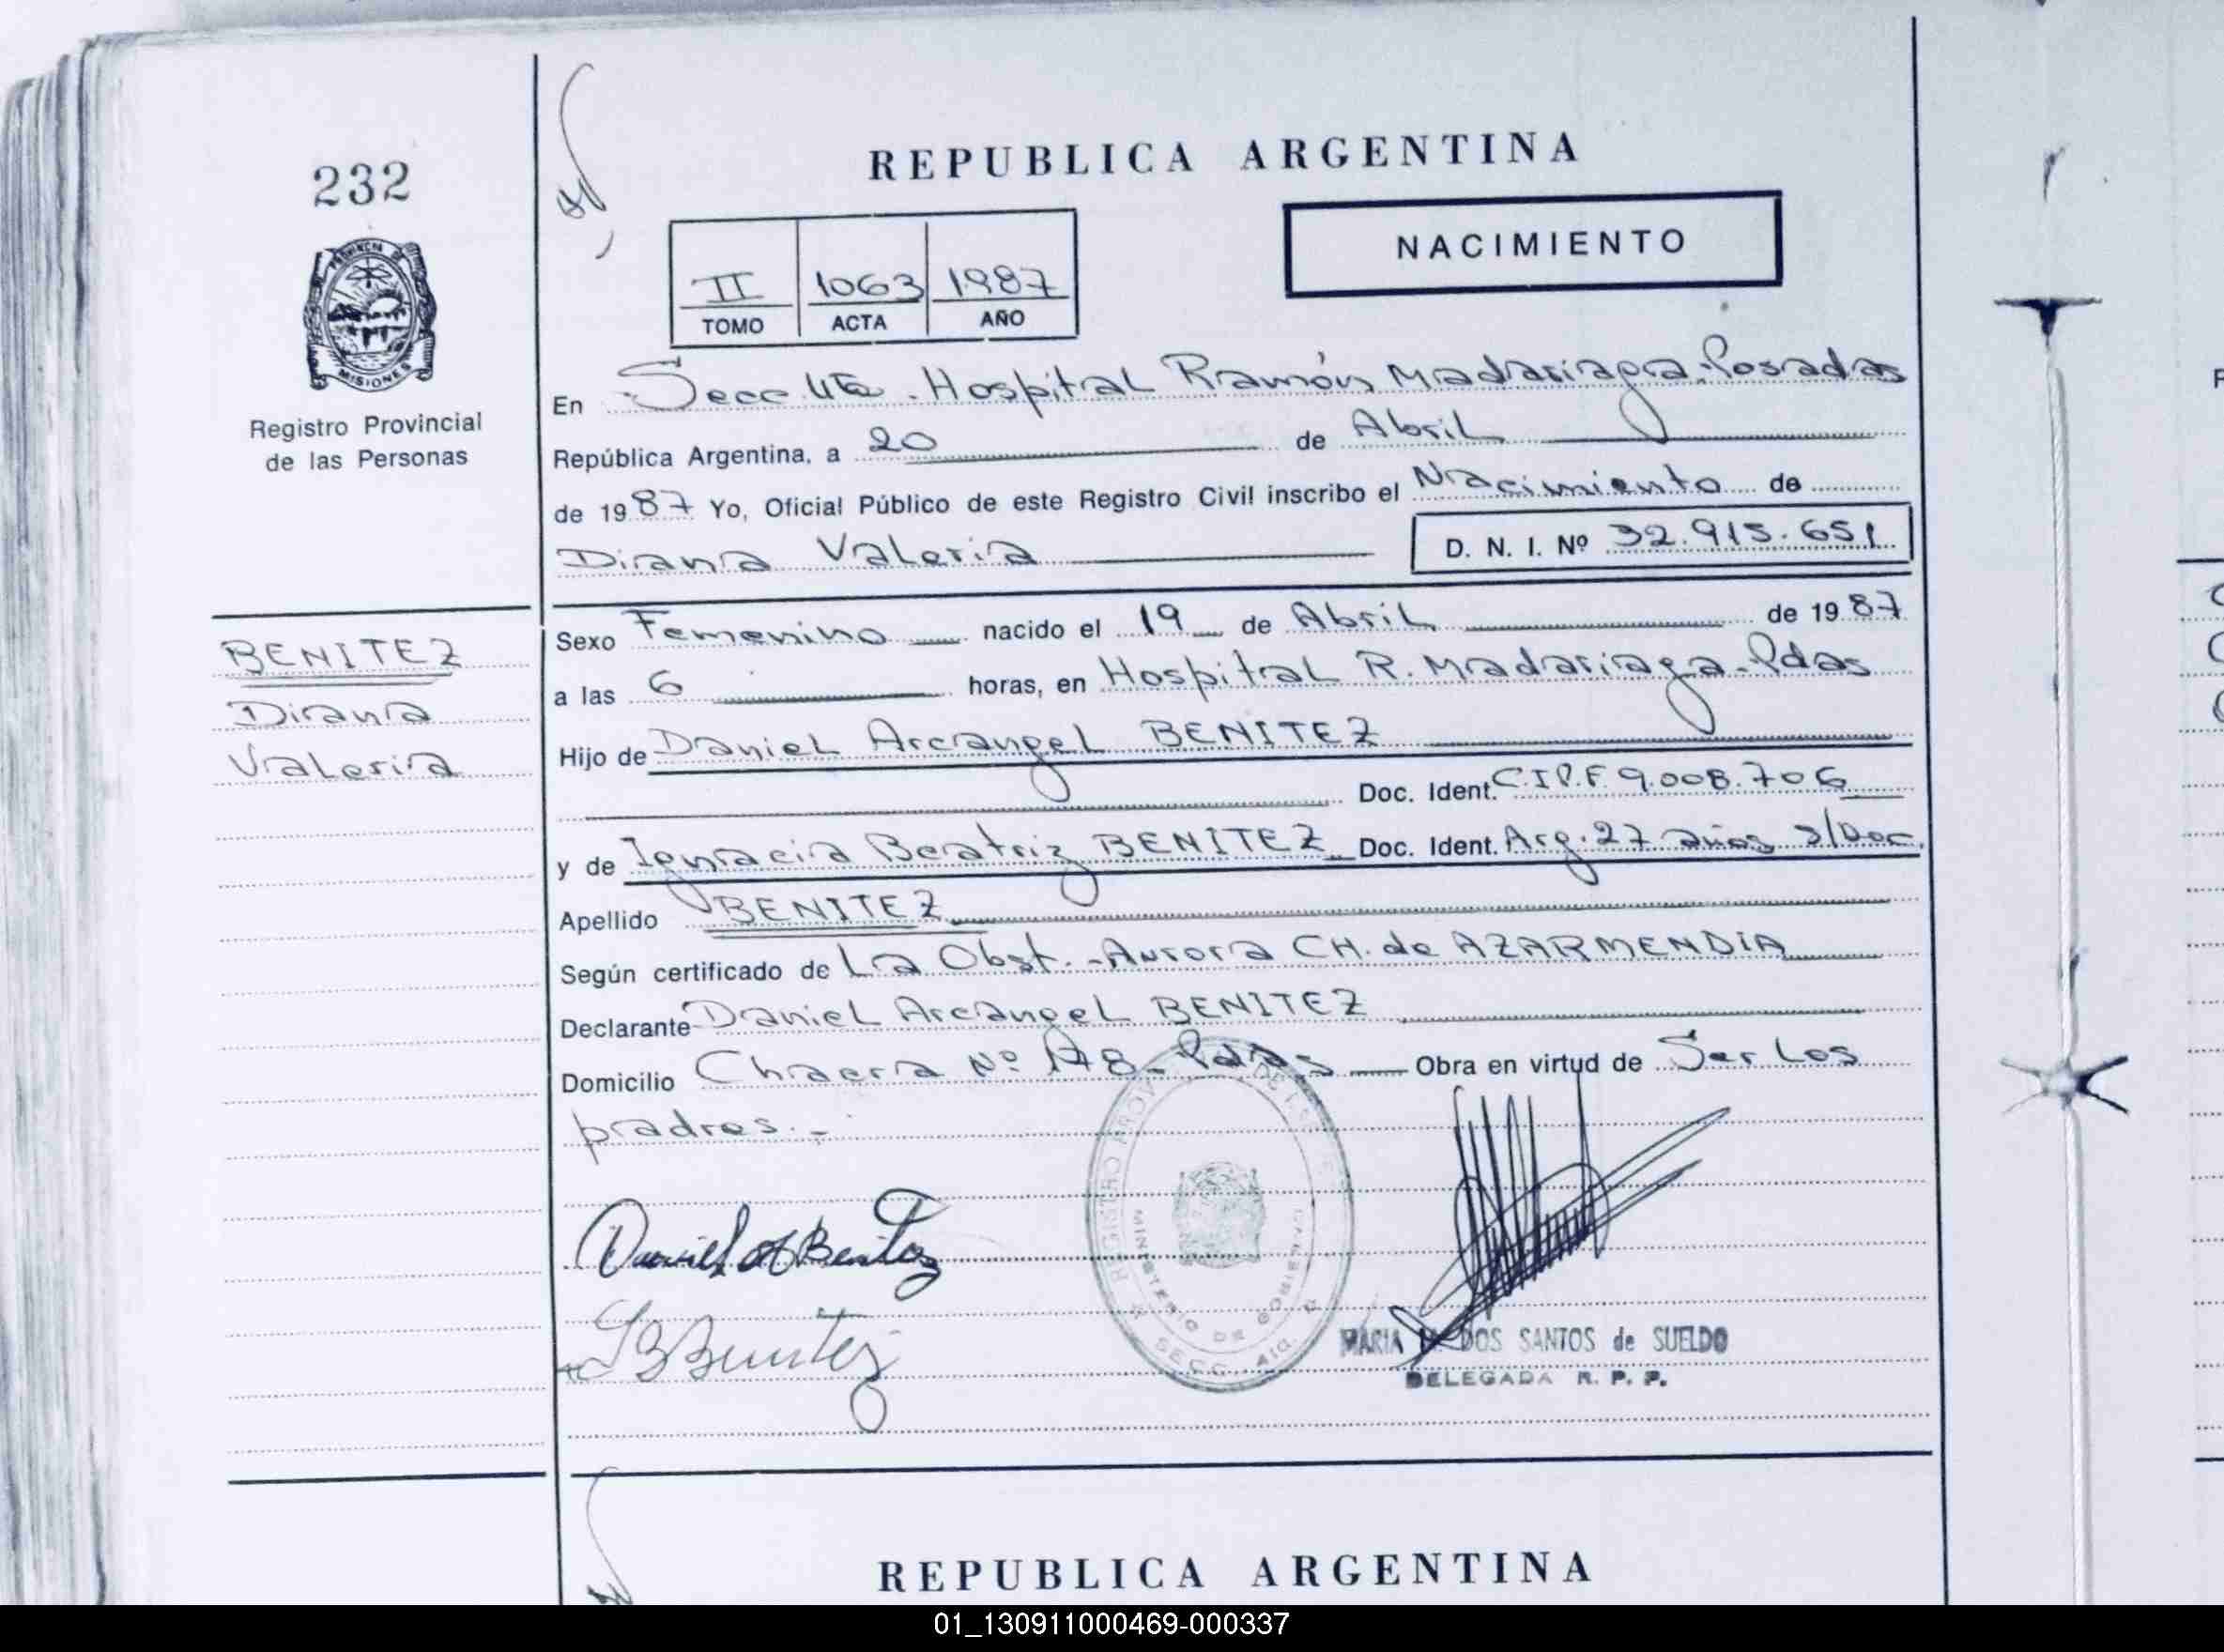 232
PROVINCIA DE
MISIONES
Registro Provincial
de las Personas
REPUBLICA ARGENTINA
NACIMIENTO
II 1063 1987
TOMO ACTA AÑO
En Secc 4ta - Hospital Ramón Madariaga - Posadas
República Argentina, a 20 de Abril
de 1987 Yo, Oficial Público de este Registro Civil inscribo el Nacimiento de
Diana Valeria D. N. I. Nº 32.915.651
BENITEZ
Diana
Valeria
Sexo Femenino nacido el 19 de Abril de 1987
a las 6 horas, en Hospital R. Madariaga - Pdas
Hijo de Daniel Arcangel BENITEZ
Doc. Ident. C.I.P.F. 9.008.706
y de Ignacia Beatriz BENITEZ Doc. Ident. Arg. 27 años s/Doc.
Apellido BENITEZ
Según certificado de La Obst. - Aurora CH. de AZARMENDIA
Declarante Daniel Arcangel BENITEZ
Domicilio Chacra Nº 178 - Pdas Obra en virtud de Ser Los
padres. -
Daniel A Benitez
Benitez
REGISTRO PROV. DE LAS
MINISTERIO DE GOBIERNO
SECC. 4ta.
MARIA DOS SANTOS de SUELDO
DELEGADA R. P. P.
REPUBLICA ARGENTINA
01_130911000469-000337